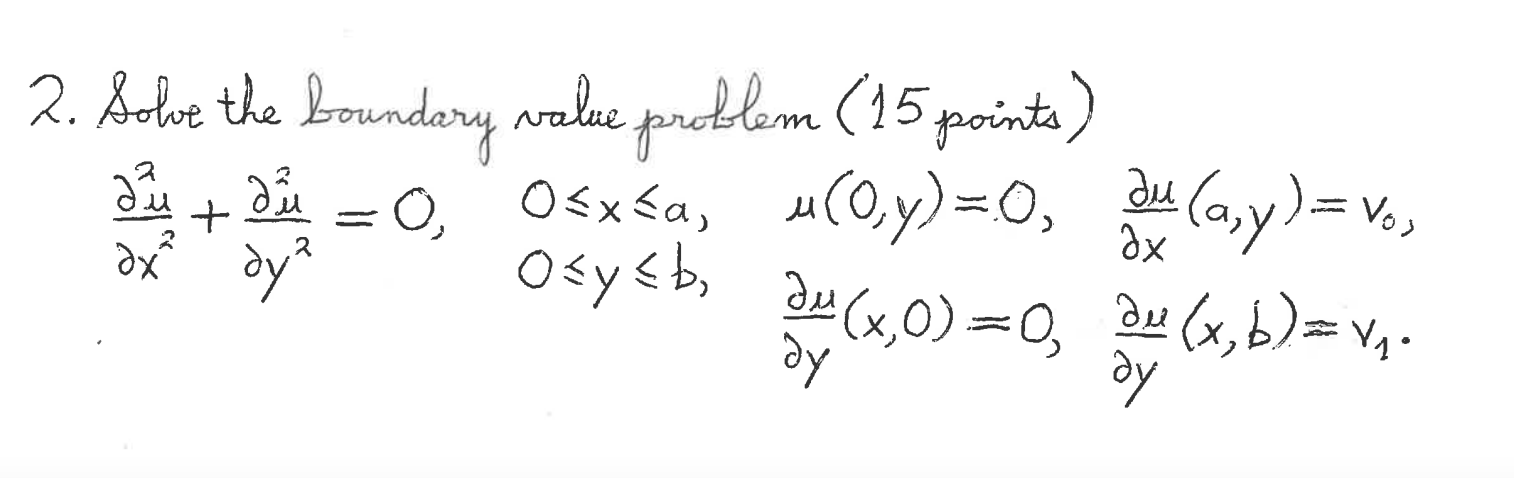 2. Solve the boundary value problem (15 points)
∂²u/∂x² + ∂²u/∂y² = 0, 0≤x≤a, u(0,y)=0, ∂u/∂x (a,y)=v₀,
0≤y≤b, ∂u/∂y (x,0)=0, ∂u/∂y (x,b)=v₁.